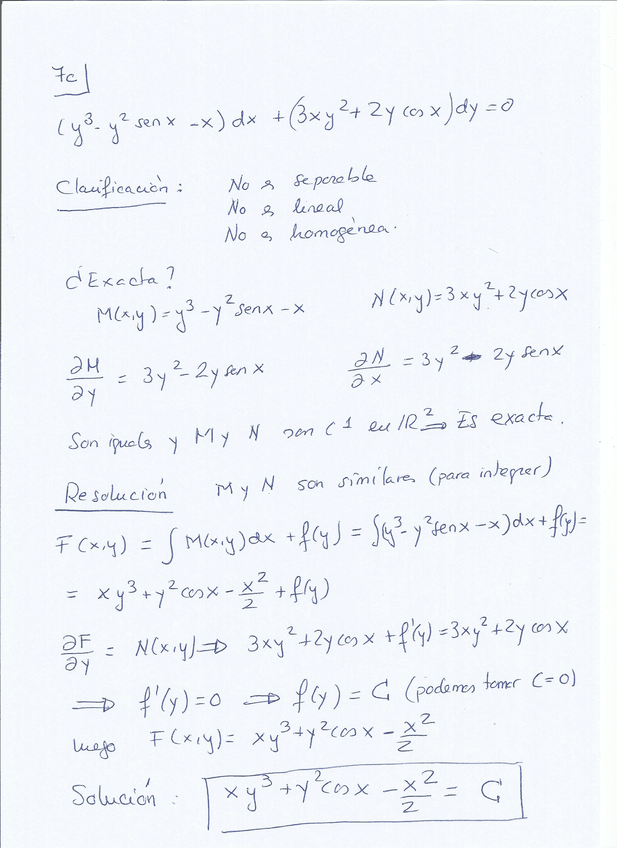 7c
(y³ - y² sen x - x) dx + (3xy² + 2y cos x) dy = 0
Clasificación : No es separable
No es lineal
No es homogénea.
¿Exacta?
M(x,y) = y³ - y² sen x - x N(x,y) = 3xy² + 2y cos x
∂M/∂y = 3y² - 2y sen x ∂N/∂x = 3y² - 2y sen x
Son iguals y M y N son C¹ en ℝ² ⇒ Es exacta.
Resolución M y N son similares (para integrar)
F(x,y) = ∫ M(x,y) dx + f(y) = ∫(y³ - y² sen x - x) dx + f(y) =
= xy³ + y² cos x - x²/2 + f(y)
∂F/∂y = N(x,y) ⇒ 3xy² + 2y cos x + f'(y) = 3xy² + 2y cos x
⇒ f'(y) = 0 ⇒ f(y) = C (podemos tomar C=0)
luego F(x,y) = xy³ + y² cos x - x²/2
Solución : xy³ + y² cos x - x²/2 = C